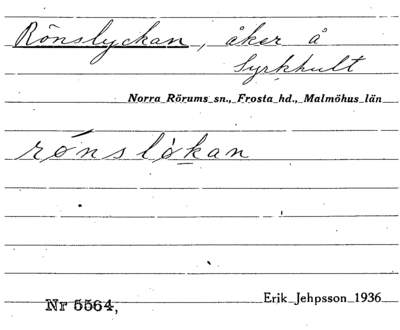 Rönslyckan, åker å
Syrkhult
Norra Rörums sn., Frosta hd., Malmöhus län
rónsløkan
Nr 5564,
Erik Jehpsson 1936